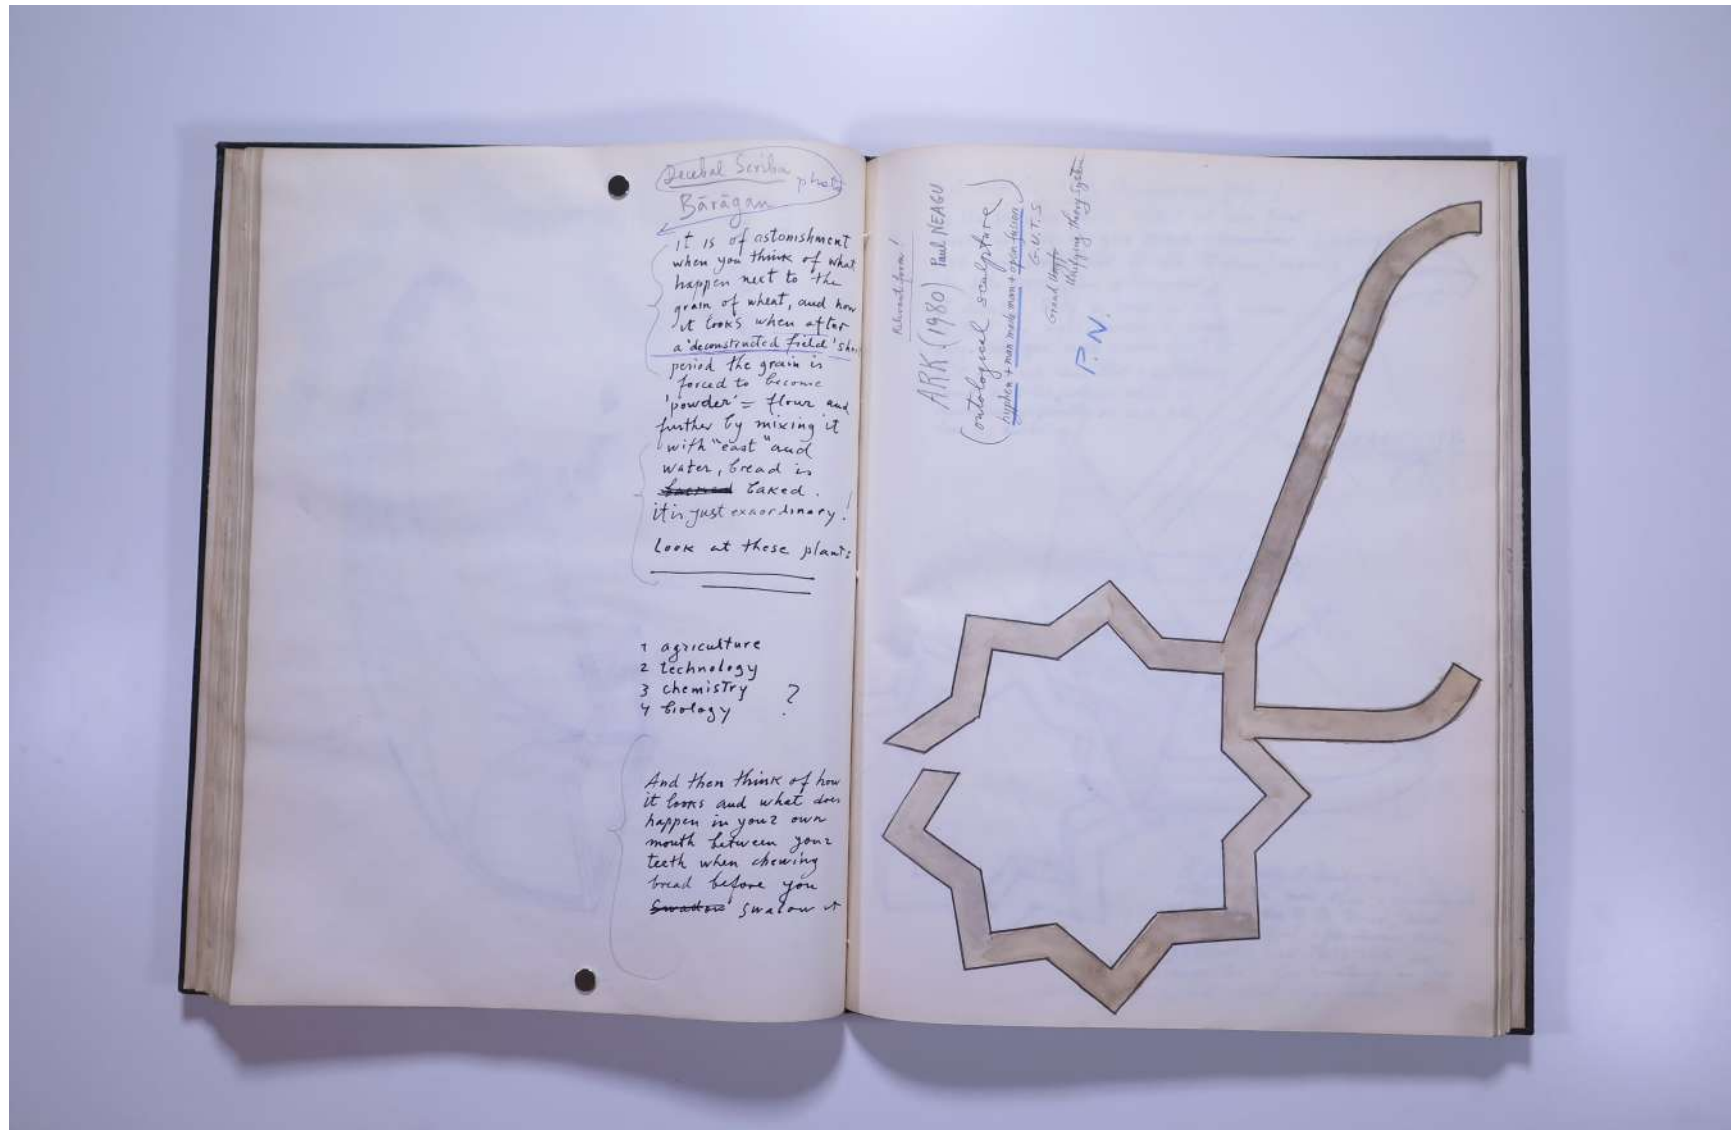 Decebal Scriba phot
Bărăgan
it is of astonishment
when you think of what
happen next to the
grain of wheat, and how
it looks when after
a 'deconstructed field' sho
period the grain is
forced to become
'powder' = flour and
further by mixing it
with "east" and
water, bread is
baked.
it is just exaordinary!
Look at these plants
1 agriculture
2 technology
3 chemistry ?
4 biology
And then think of how
it looks and what does
happen in your own
mouth between your
teeth when chewing
bread before you
swalow it
form!
ARK (1980) Paul NEAGU
(ontological sculpture)
hyphen + man made man + open fusion
G.U.T.S
Grand
Unifying theory System
P.N.